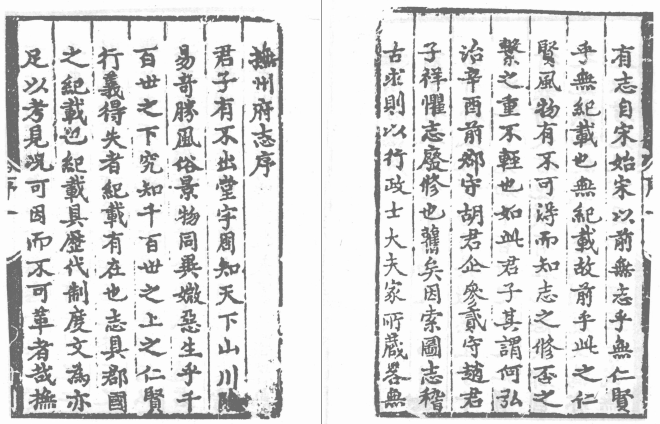 撫州府志序
君子有不出堂宇周知天下山川險
易奇勝風俗景物同異媺惡生乎千
百世之下究知千百世之上之仁賢
行義得失者紀載有在也志具郡國
之紀載也紀載具歷代制度文為亦
足以考見況可因而不可革者哉撫
有志自宋始宋以前無志乎無仁賢
乎無紀載也無紀載故前乎此之仁
賢風物有不可得而知志之修否之
繫之重不輕也如此君子其謂何弘
治辛酉前郡守胡君企參貳守趙君
子祥懼志廢修也舊矣因索圖志稽
古求則以行政士大夫家所蔵畧無